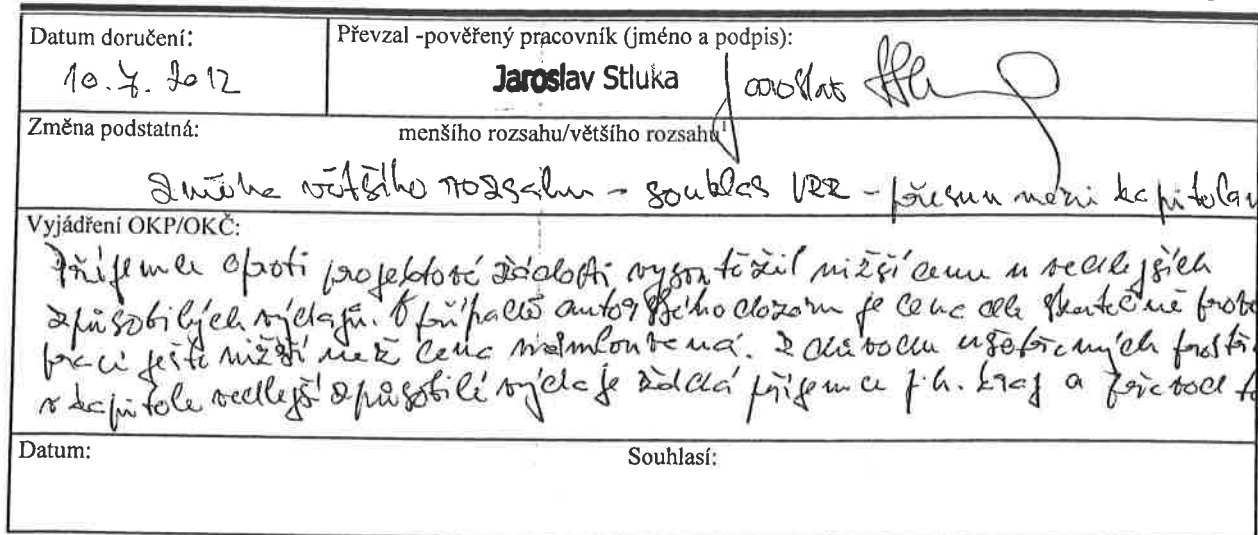 Datum doručení:
Převzal -pověřený pracovník (jméno a podpis):
10. 7. 2012
Jaroslav Stluka
Jaroslav
Změna podstatná:
menšího rozsahu/většího rozsahu¹
změna většího rozsahu - souhlas VRR - přesun mezi kapitolam
Vyjádření OKP/OKČ:
Příjemce oproti projektové žádosti vysoutěžil nižší cenu u vedlejších
způsobilých výdajů. V případě autorského dozoru je cena dle skutečně prov
prací ještě nižší než cena nasmlouvaná. Z důvodu ušetřených prostř
v kapitole vedlejší způsobilé výdaje žádá příjemce j.h. kraj a převod
Datum:
Souhlasí: